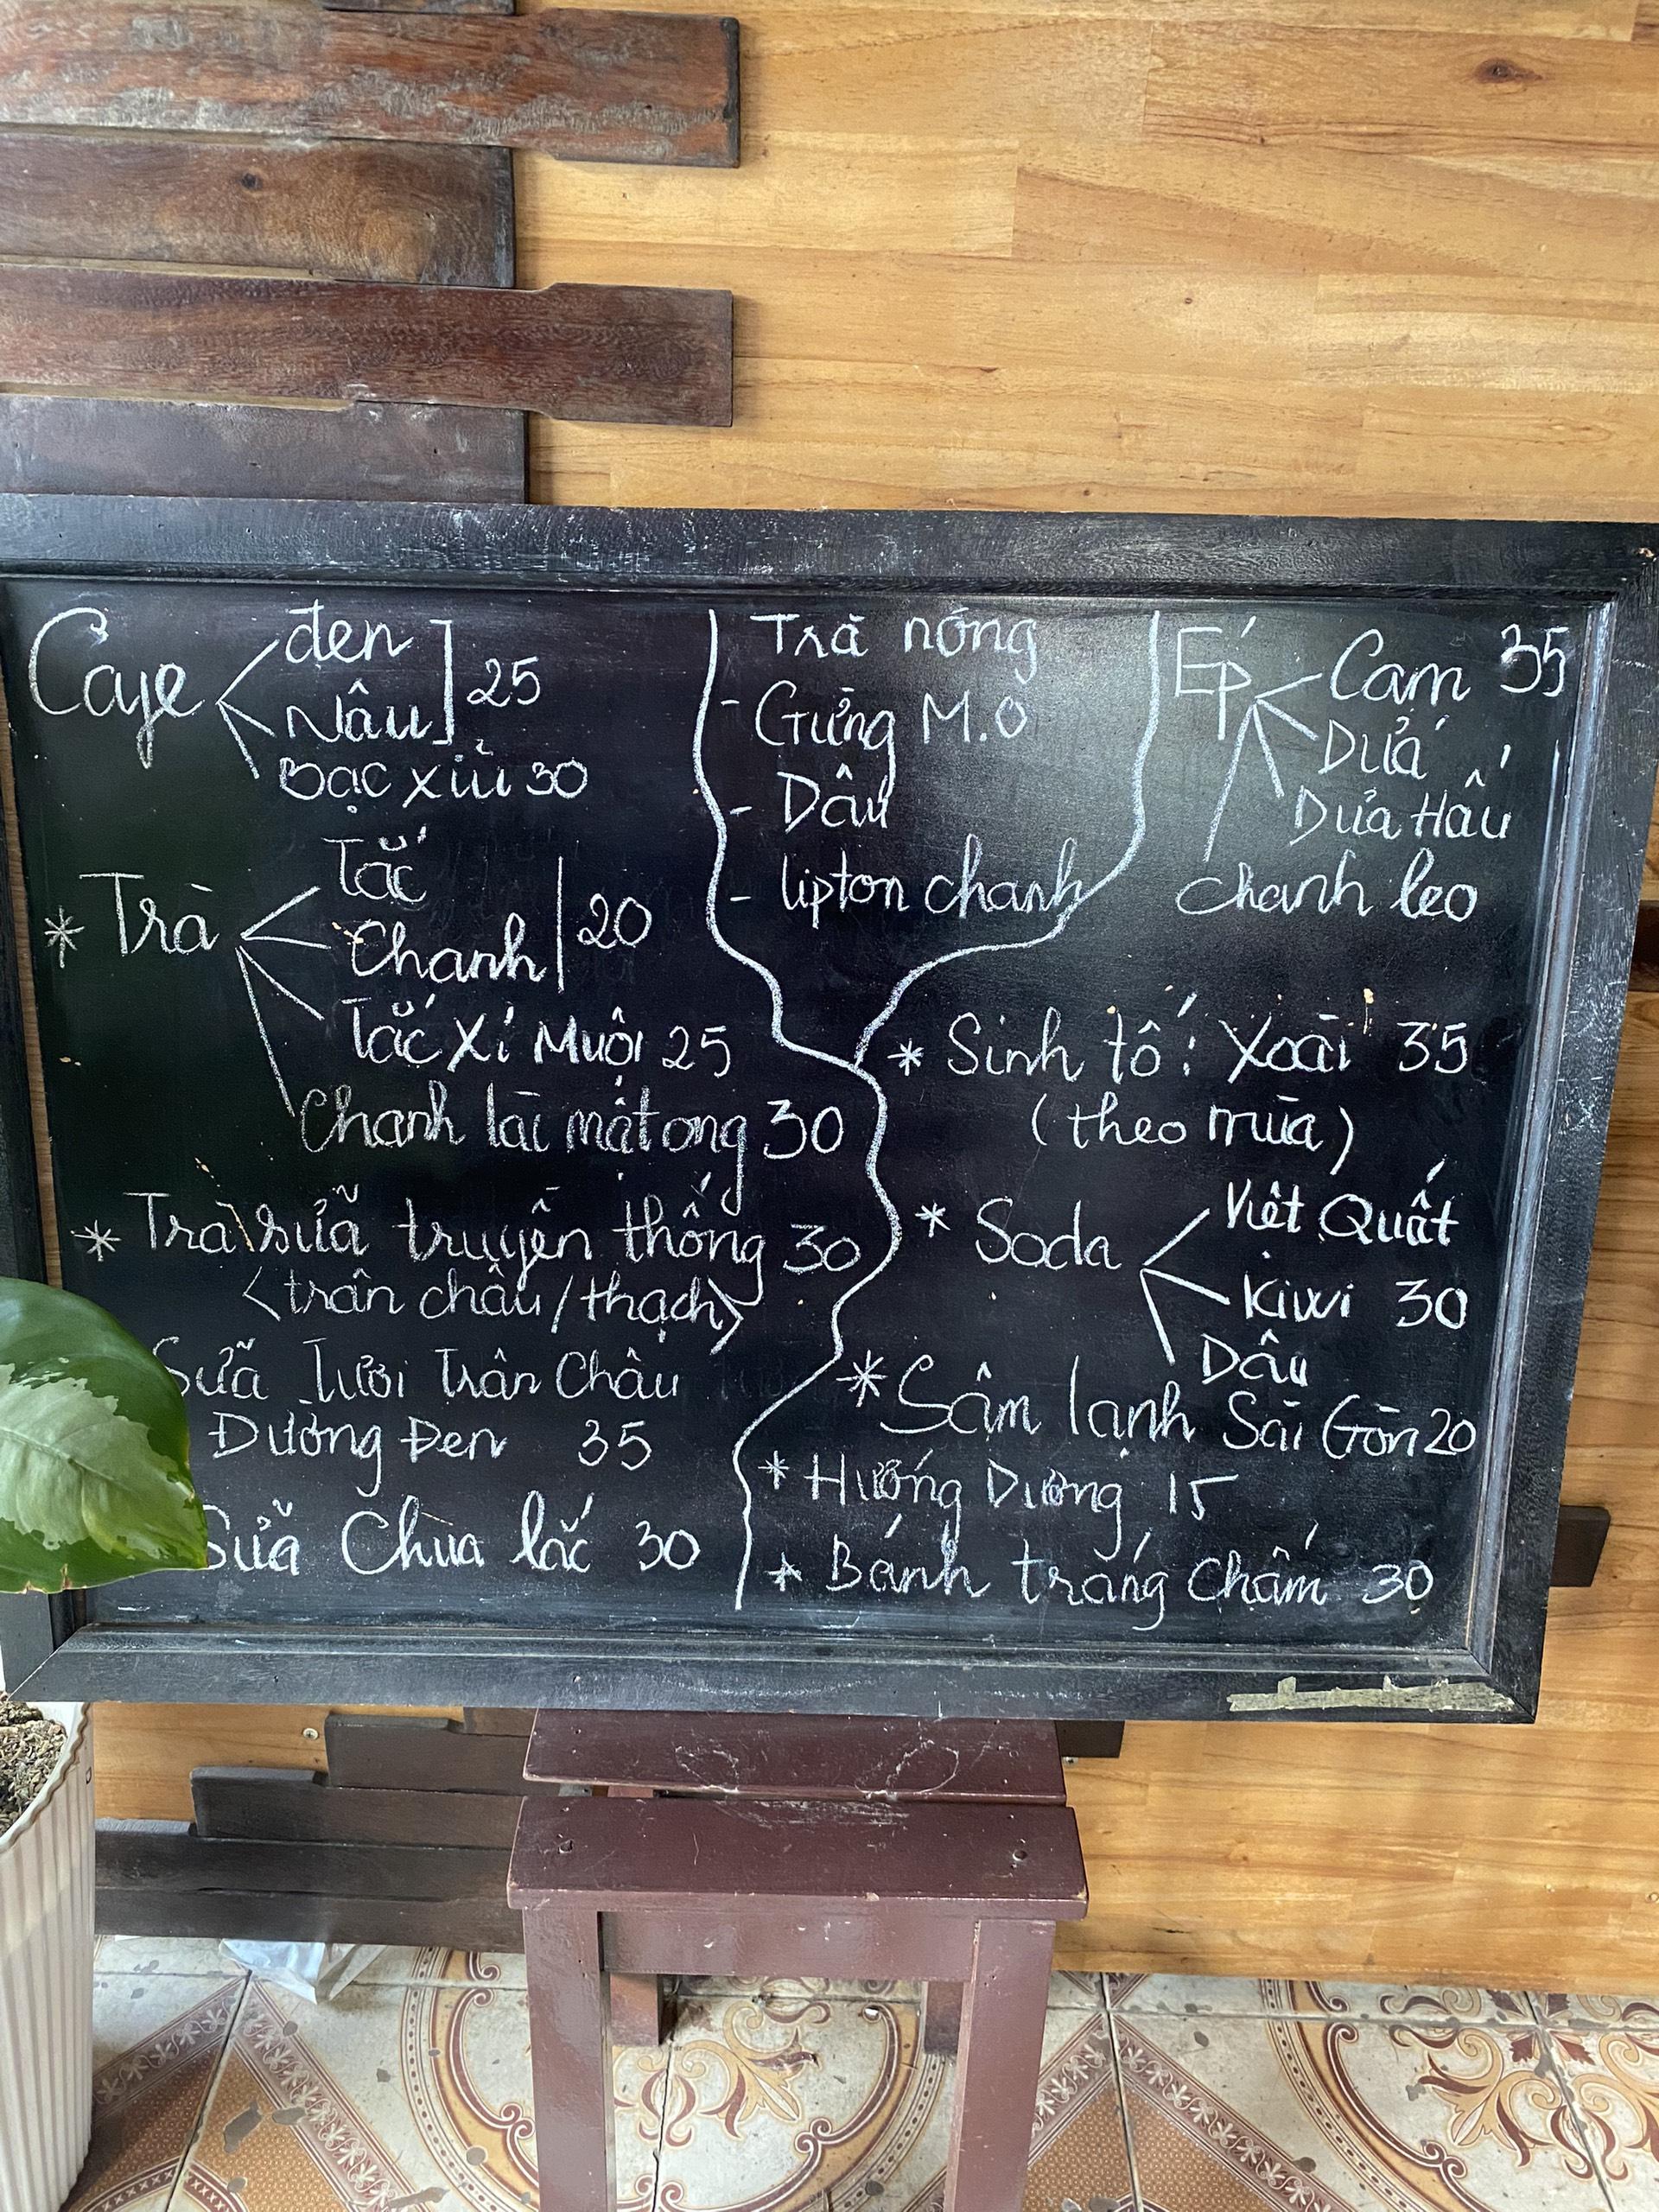 Cafe đen 25
Nâu
Bạc xỉu 30
* Trà Tắc 20
Chanh
Tắc Xí Muội 25
Chanh lài mật ong 30
* Trà sữa truyền thống 30
<trân châu/thạch>
Sữa Tươi Trân Châu
Đường Đen 35
Sữa Chua lắc 30
Trà nóng
- Gừng M.O
- Dâu
- lipton chanh
Ép Cam 35
Dứa
Dưa Hấu
chanh leo
* Sinh tố: Xoài 35
(theo mùa)
* Soda Việt Quất
Kiwi 30
Dâu
* Sâm lạnh Sài Gòn 20
* Hướng Dương 15
* Bánh tráng chấm 30